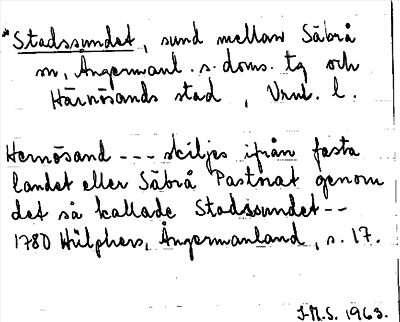 *Stadssundet, sund mellan Säbrå
sn, Ångermanl. s. doms. tg och
Härnösands stad, Vrnl. l.
Hernösand --- skiljes ifrån fasta
landet eller Säbrå Pastorat genom
det så kallade Stadssundet--
1780 Hülphers, Ångermanland, s. 17.
J.M.S. 1963.